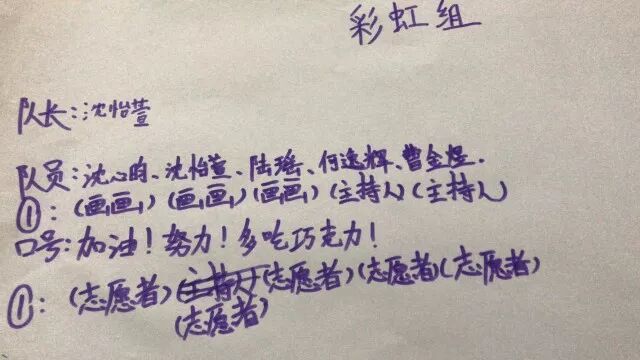 彩虹组
队长:沈怡萱
队员:沈心昀、沈怡萱、陆瑶、何逸辉、曹金煜.
①:(画画)(画画)(画画)(主持人)(主持人)
口号:加油!努力!多吃巧克力!
①:(志愿者)(志愿者)(志愿者)(志愿者)
(志愿者)